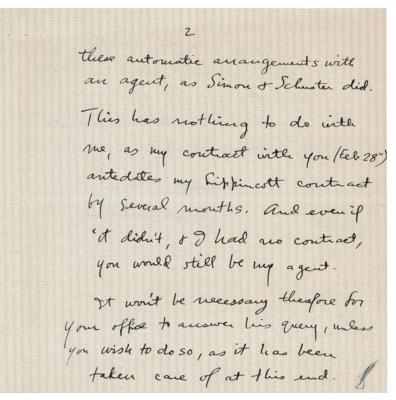 2
these automatic arrangements with
an agent, as Simon & Schuster did.
This has nothing to do with
me, as my contract with you (Feb 28")
antedates my Lippincott contract
by several months. And even if
it didn't, & I had no contract,
you would still be my agent.
It won't be necessary therefore for
your office to answer his query, unless
you wish to do so, as it has been
taken care of at this end.